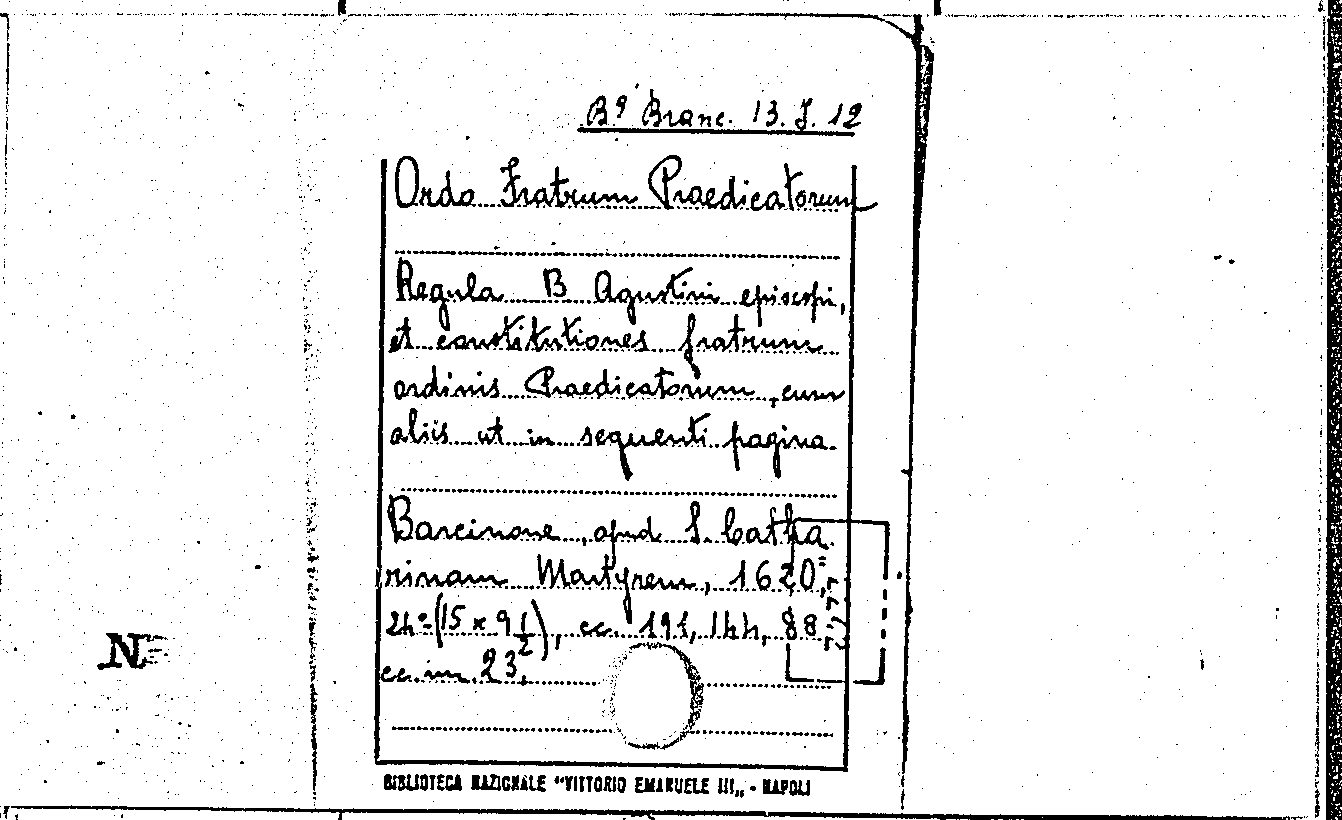 Bª Branc. 13. J. 12
Ordo Fratrum Praedicatorum
Regula B Agustini episcopi,
et constitutiones fratrum
ordinis Praedicatorum, cum
aliis ut in sequenti pagina.
Barcinone, apud S. Catha
rinam Martyrem, 1620,
24º (15 x 9 1/2), cc. 191, 144, 88
cc. in. 23.
N
BIBLIOTECA NAZIONALE "VITTORIO EMANUELE III„ - NAPOLI